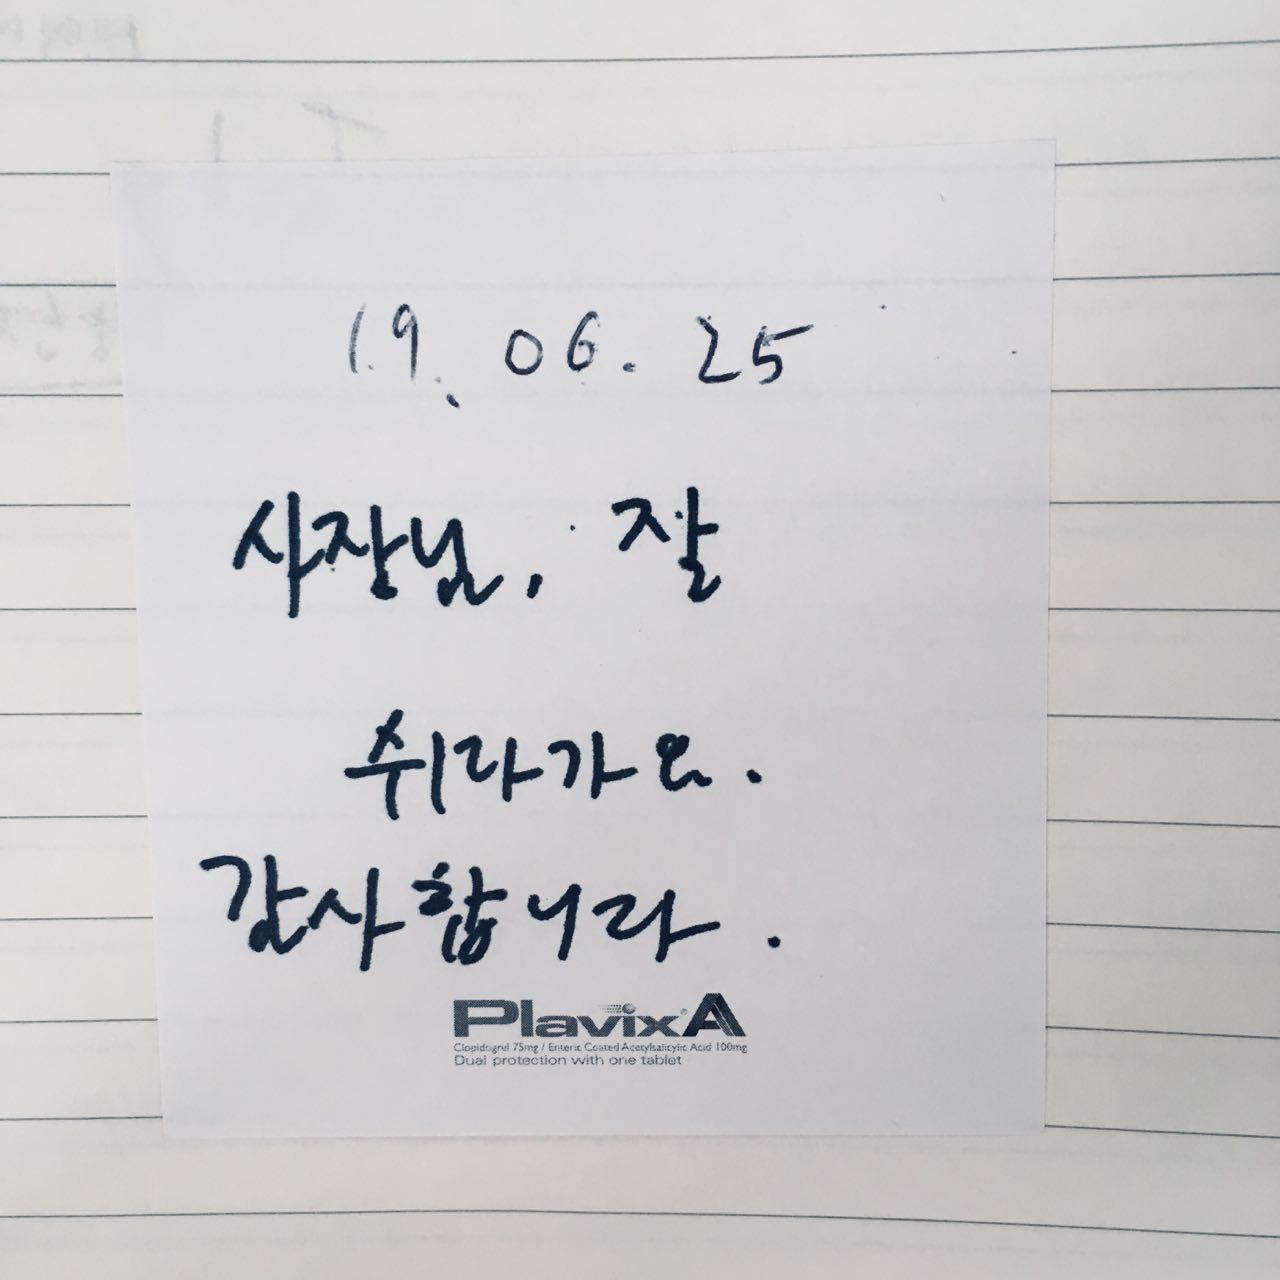 19. 06. 25
사장님, 잘
쉬라가요.
감사합니다.
PlavixA
Clopidogrel 75mg / Enteric Coated Acetylsalicylic Acid 100mg
Dual protection with one tablet